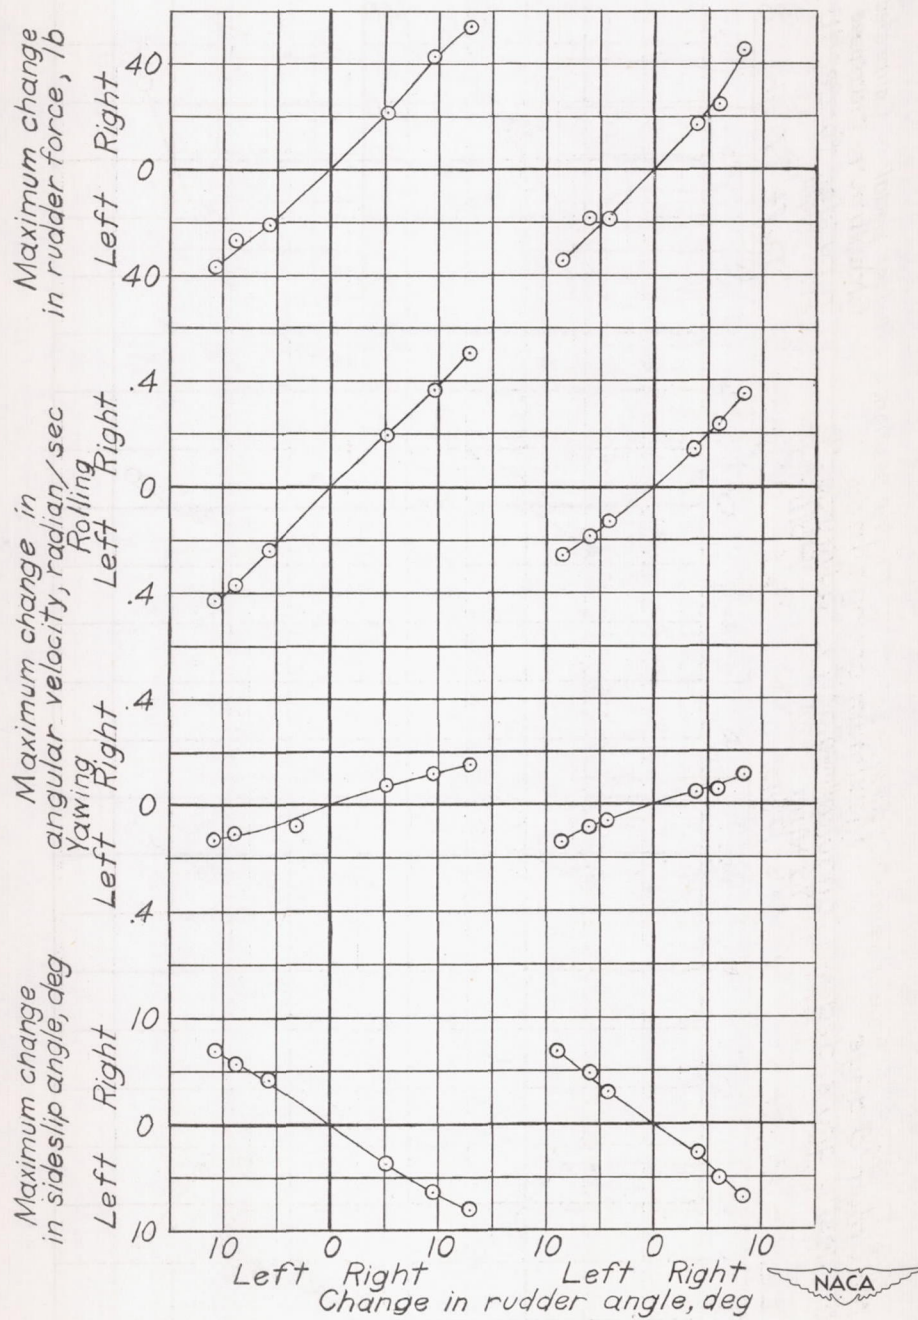 Maximum change
in rudder force, lb
Left Right
40
0
40
Maximum change in
angular velocity, radian/sec
Rolling
Left Right
.4
0
.4
Yawing
Left Right
.4
0
.4
Maximum change
in sideslip angle, deg
Left Right
10
0
10
10 0 10 10 0 10
Left Right Left Right
Change in rudder angle, deg
NACA